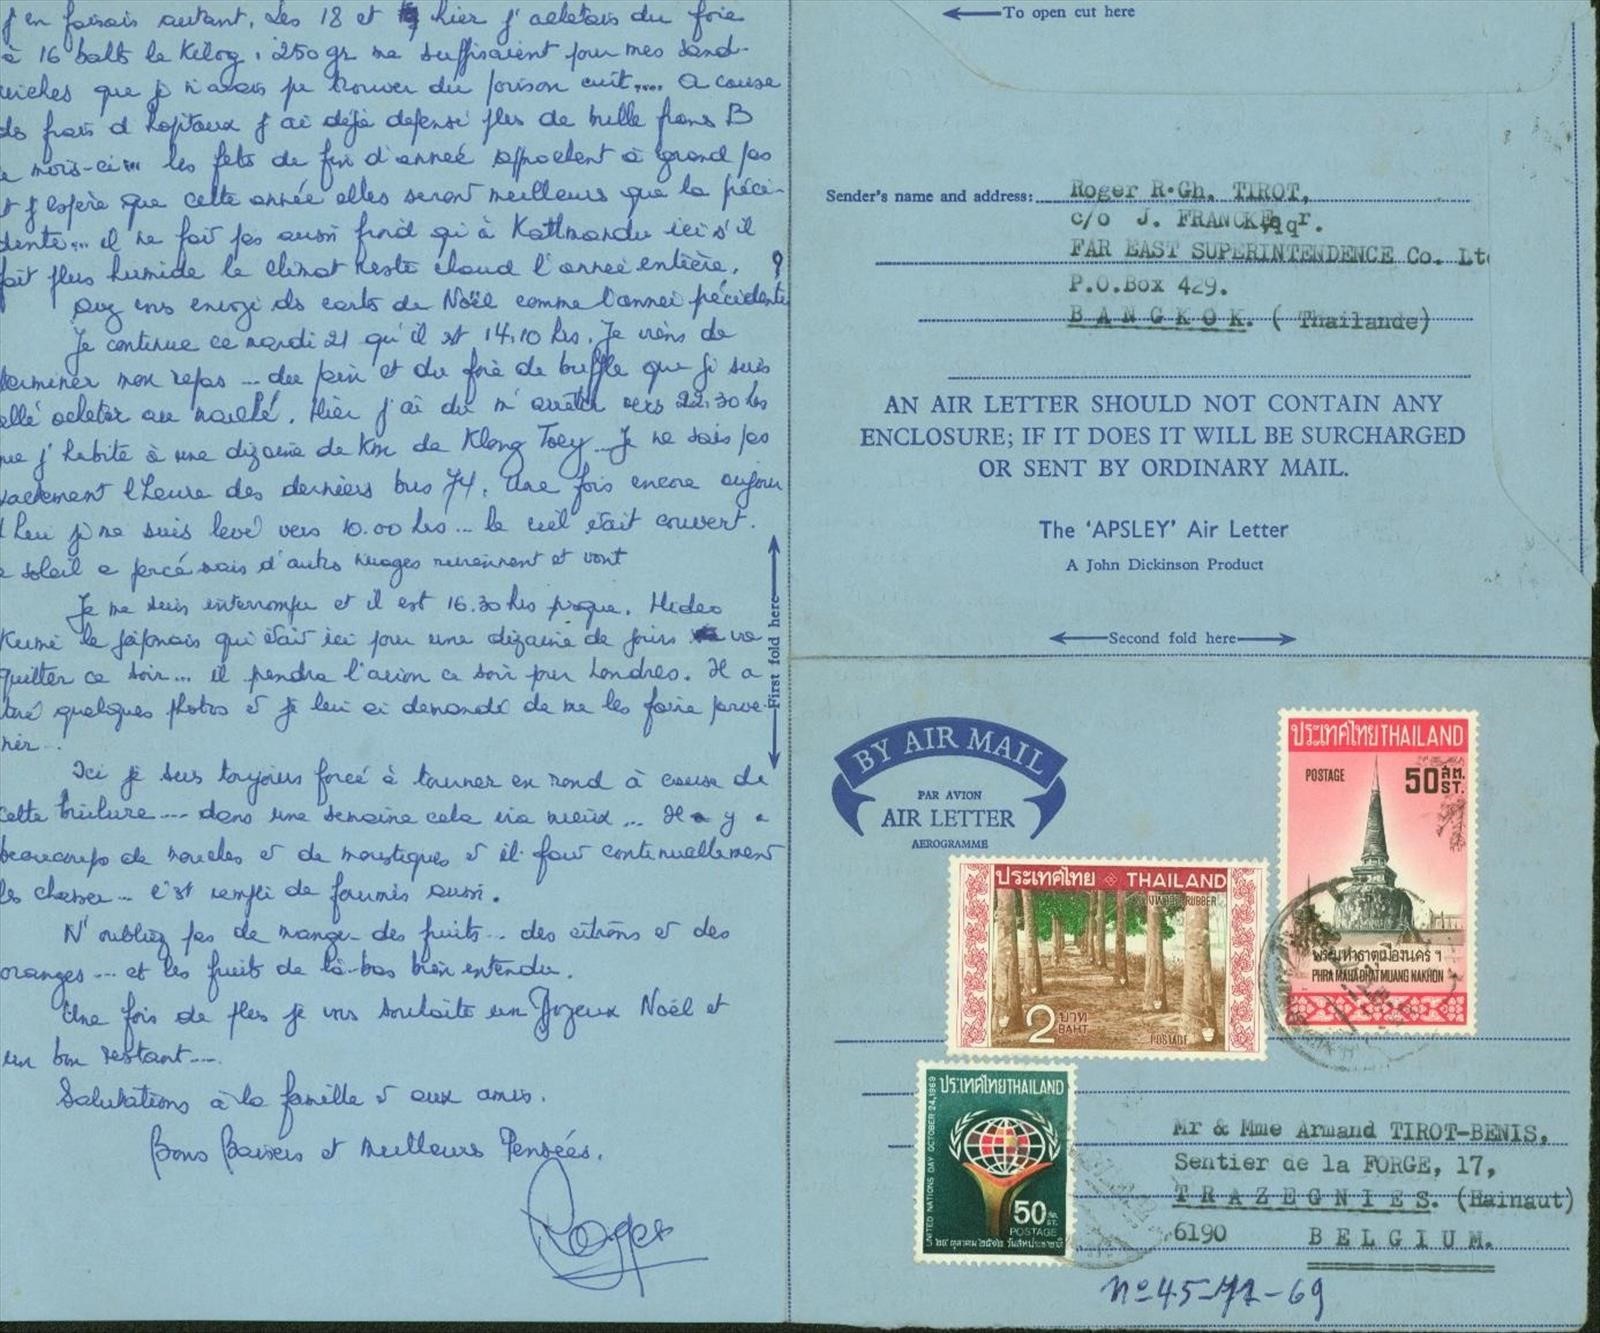 j'en faisais autant. Les 18 et hier j'achetais du foie
à 16 bahts le Kilog, 250 gr me suffisaient pour mes sand-
wiches que je n'avais pu trouver du poisson cuit.... A cause
des frais d'hopitaux j'ai déjà dépensé plus de mille francs B
ce mois-ci... les fêtes de fin d'année approchent à grand pas
et j'espère que cette année elles seront meilleurs que la précé-
dente... il ne fait pas aussi froid qu'à Katmandu ici s'il
fait plus humide le climat reste chaud l'année entière.
envoyé des carts de Noël comme l'année précédente
Je continue ce mardi 21 qu'il est 14.10 hrs. Je viens de
terminer mon repas ... du pain et du foie de buffle que je suis
allé acheter au marché. Hier j'ai dû m'arrêter vers 22.30 hrs
que j'habite à une dizaine de Km de Klong Toey... Je ne sais pas
exactement l'heure des derniers bus 74. Une fois encore aujour
d'hui je me suis levé vers 10.00 hrs ... le ciel était couvert.
le soleil a percé mais d'autres nuages reviennent et vont
Je me suis interrompu et il est 16.30 hrs presque. Hideo
Kumé le japonais qui était ici pour une dizaine de jours va
quitter ce soir... il prendra l'avion ce soir pour Londres. Il a
tiré quelques photos et je lui ai demandé de me les faire parve-
nir...
Ici je suis toujours forcé à tourner en rond à cause de
cette brûlure ... dans une semaine cela ira mieux ... Il y a
beaucoup de mouches et de moustiques et il faut continuellement
les chasser ... c'est rempli de fourmis aussi.
N'oubliez pas de manger des fruits ... des citrons et des
oranges ... et les fruits de là-bas bien entendu.
Une fois de plus je vous souhaite un Joyeux Noël et
un bon restant....
Salutations à la famille et aux amis.
Bons Baisers et meilleurs Pensées.
Roger
First fold here
To open cut here
Sender's name and address:
Roger R.Gh. TIROT,
c/o J. FRANCK
FAR EAST SUPERINTENDENCE Co. Lt
P.O.Box 429.
BANGKOK. ( Thaïlande)
AN AIR LETTER SHOULD NOT CONTAIN ANY
ENCLOSURE; IF IT DOES IT WILL BE SURCHARGED
OR SENT BY ORDINARY MAIL.
The 'APSLEY' Air Letter
A John Dickinson Product
Second fold here
BY AIR MAIL
PAR AVION
AIR LETTER
AEROGRAMME
ประเทศไทย THAILAND
POSTAGE 50 สต. ST.
พระมหาธาตุเมืองนคร ฯ
PHRA MAHA DHAT MUANG NAKHON
ประเทศไทย THAILAND
RUBBER
2 บาท BAHT
POSTAGE
ประเทศไทย THAILAND
UNITED NATIONS DAY OCTOBER 24, 1969
50 สต. ST.
POSTAGE
๒๔ ตุลาคม ๒๕๑๒ วันสหประชาชาติ
Mr & Mme Armand TIROT-BENIS.
Sentier de la FORGE, 17,
TRAZEGNIES. (Hainaut)
6190 BELGIUM.